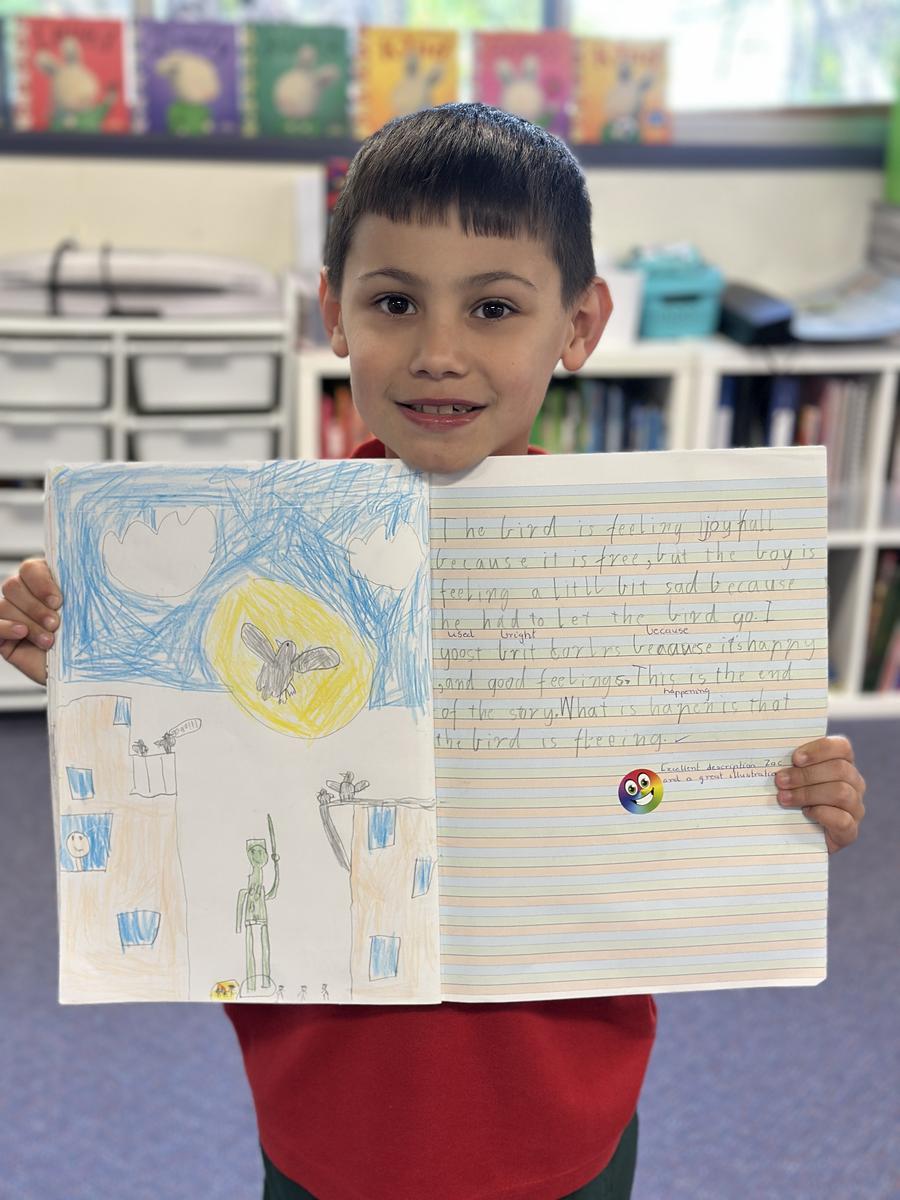 The bird is feeling joyfull
because it is free, but the boy is
feeling a litll bit sad because
he had to let the bird go. I
used bright because
yoost brit corlrs beauwse it's happy
, and good feelings. This is the end
happening
of the story. What is hapen is that
the bird is freeing.
Excellent description Zac
and a great illustration